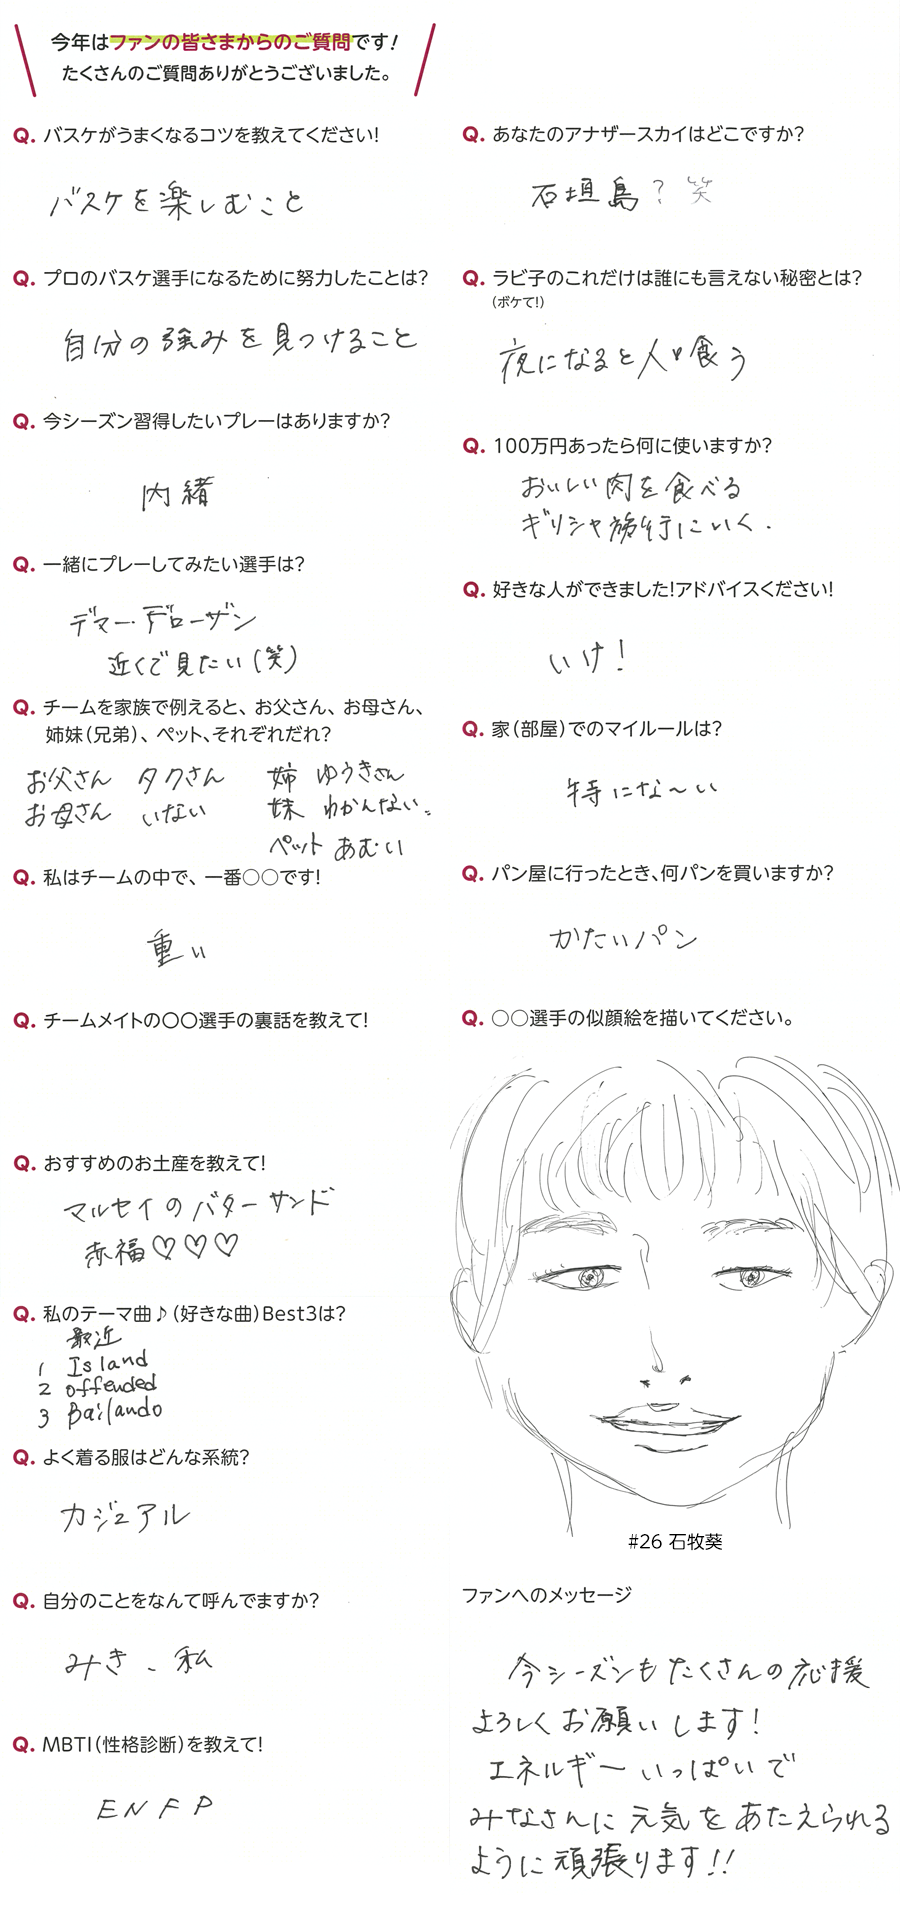 今年はファンの皆さまからのご質問です!
たくさんのご質問ありがとうございました。
Q. バスケがうまくなるコツを教えてください!
バスケを楽しむこと
Q. プロのバスケ選手になるために努力したことは?
自分の強みを見つけること
Q. 今シーズン習得したいプレーはありますか?
内緒
Q. 一緒にプレーしてみたい選手は?
デマー・デローザン
近くで見たい(笑)
Q. チームを家族で例えると、お父さん、お母さん、
姉妹(兄弟)、ペット、それぞれだれ?
お父さん タクさん 姉 ゆうきさん
お母さん いない 妹 わかんない。
ペット あむい
Q. 私はチームの中で、一番○○です!
重い
Q. チームメイトの〇〇選手の裏話を教えて!
Q. おすすめのお土産を教えて!
マルセイのバターサンド
赤福♡♡♡
Q. 私のテーマ曲♪(好きな曲)Best3は?
最近
1 Island
2 offended
3 Bailando
Q. よく着る服はどんな系統?
カジュアル
Q. 自分のことをなんて呼んでますか?
みき、私
Q. MBTI(性格診断)を教えて!
ENFP
Q. あなたのアナザースカイはどこですか?
石垣島?笑
Q. ラビ子のこれだけは誰にも言えない秘密とは?
(ボケて!)
夜になると人食う
Q. 100万円あったら何に使いますか?
おいしい肉を食べる
ギリシャ旅行にいく.
Q. 好きな人ができました!アドバイスください!
いけ!
Q. 家(部屋)でのマイルールは?
特にな〜い
Q. パン屋に行ったとき、何パンを買いますか?
かたいパン
Q. ○○選手の似顔絵を描いてください。
#26 石牧葵
ファンへのメッセージ
今シーズンもたくさんの応援
よろしくお願いします!
エネルギーいっぱいで
みなさんに元気をあたえられる
ように頑張ります!!